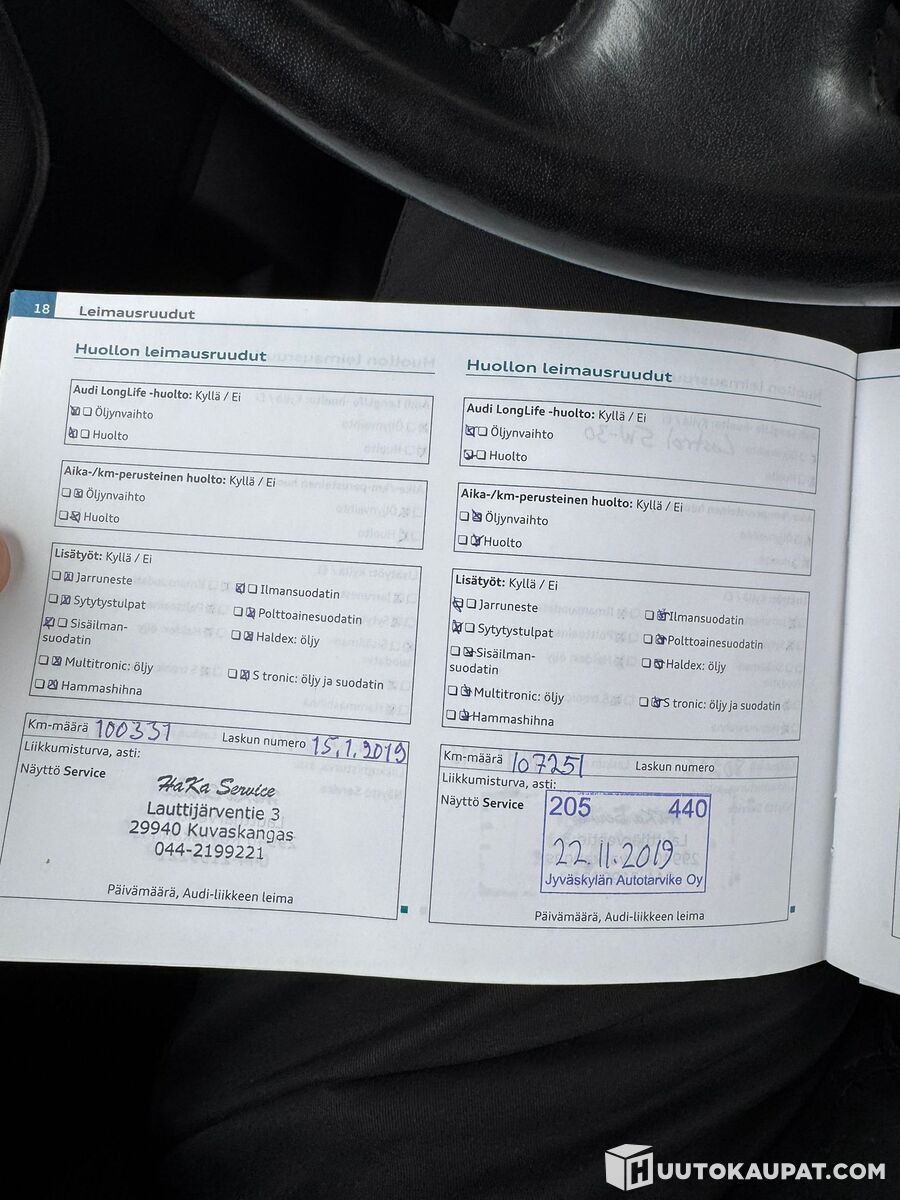 18 Leimausruudut
Huollon leimausruudut
Audi LongLife -huolto: Kyllä / Ei
Öljynvaihto
Huolto
Aika-/km-perusteinen huolto: Kyllä / Ei
Öljynvaihto
Huolto
Lisätyöt: Kyllä / Ei
Jarruneste
Ilmansuodatin
Sytytystulpat
Polttoainesuodatin
Sisäilman-
suodatin
Haldex: öljy
Multitronic: öljy
S tronic: öljy ja suodatin
Hammashihna
Km-määrä 100331 Laskun numero 15.1.2019
Liikkumisturva, asti:
Näyttö Service
HaKa Service
Lauttijärventie 3
29940 Kuvaskangas
044-2199221
Päivämäärä, Audi-liikkeen leima
Huollon leimausruudut
Audi LongLife -huolto: Kyllä / Ei
Öljynvaihto
Huolto
Aika-/km-perusteinen huolto: Kyllä / Ei
Öljynvaihto
Huolto
Lisätyöt: Kyllä / Ei
Jarruneste
Ilmansuodatin
Sytytystulpat
Polttoainesuodatin
Sisäilman-
suodatin
Haldex: öljy
Multitronic: öljy
S tronic: öljy ja suodatin
Hammashihna
Km-määrä 107251 Laskun numero
Liikkumisturva, asti:
Näyttö Service
205 440
22.11.2019
Jyväskylän Autotarvike Oy
Päivämäärä, Audi-liikkeen leima
HUUTOKAUPAT.COM